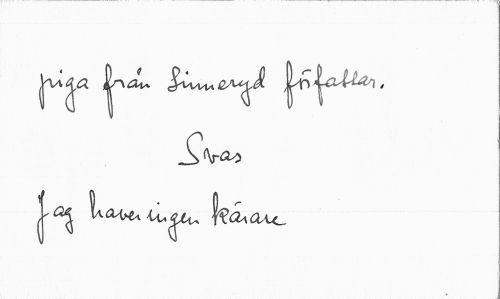 piga från Linneryd författar.
Svas
Jag haver ingen kärare